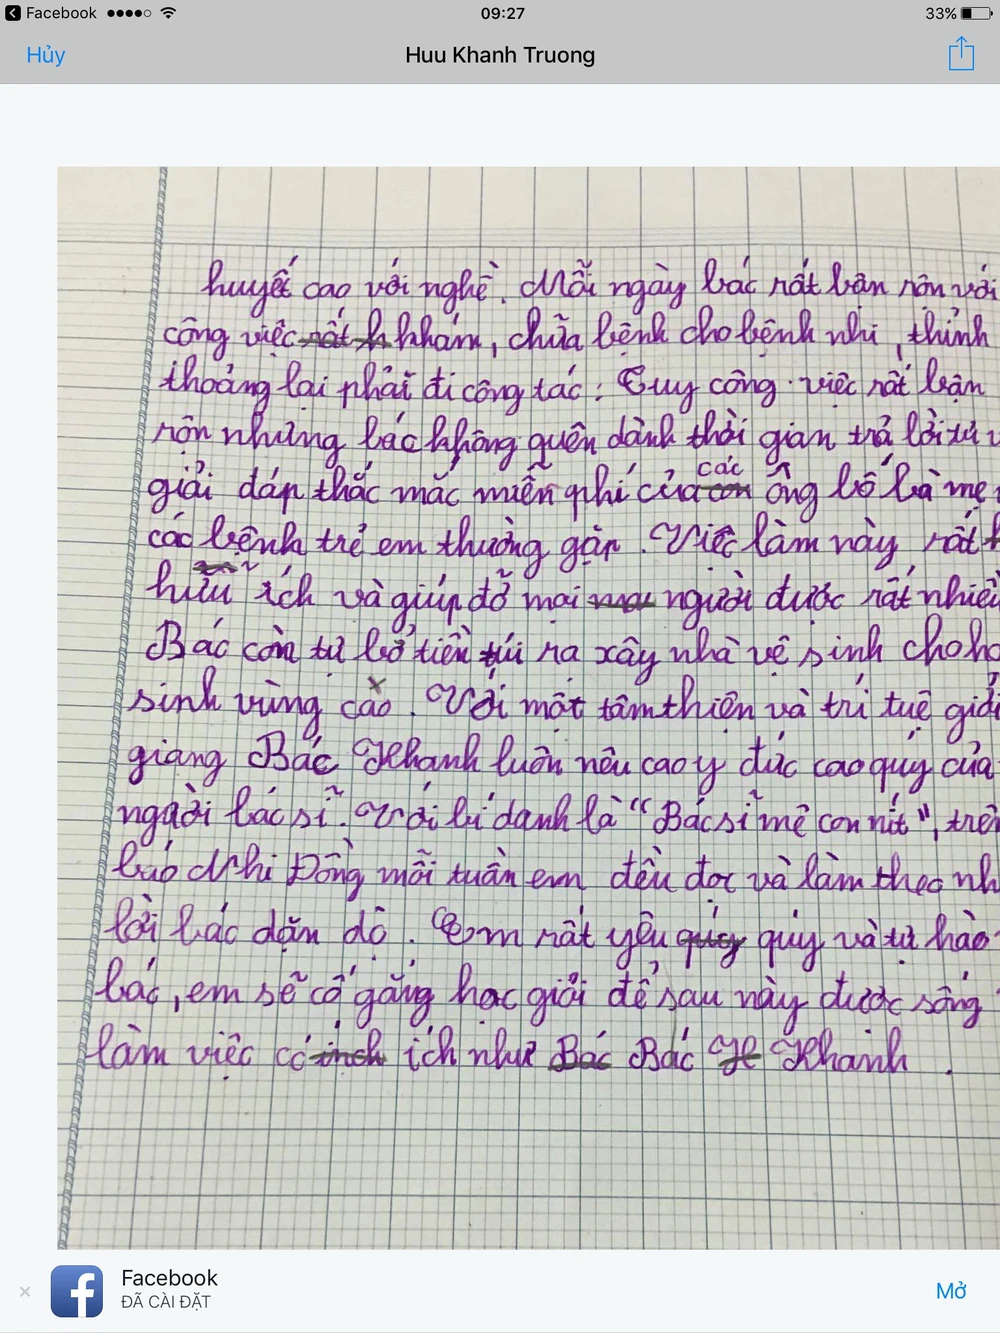 Facebook 09:27 33%
Hủy Huu Khanh Truong
huyết cao với nghề. Mỗi ngày bác rất bận rộn với
công việc rất h khám, chữa bệnh cho bệnh nhi, thỉnh
thoảng lại phải đi công tác. Tuy công việc rất bận
rộn nhưng bác không quên dành thời gian trả lời tư v
các
giải đáp thắc mắc miễn phí của con ông bố bà mẹ
các bệnh trẻ em thường gặp. Việc làm này rất
hữu ích và giúp đỡ mọi người được rất nhiều
Bác còn tự bỏ tiền túi ra xây nhà vệ sinh cho họ
sinh vùng cao. Với một tâm thiện và trí tuệ giỏi
giang Bác Khanh luôn nêu cao y đức cao quý của
người bác sĩ. Với bí danh là "Bác sĩ mê con nít", trên
báo Nhi Đồng mỗi tuần em đều đọc và làm theo nh
lời bác dặn dò. Em rất yêu quý quý và tự hào
bác, em sẽ cố gắng học giỏi để sau này được sống
làm việc có inch ích như Bác Bác K Khanh.
Facebook
ĐÃ CÀI ĐẶT
Mở